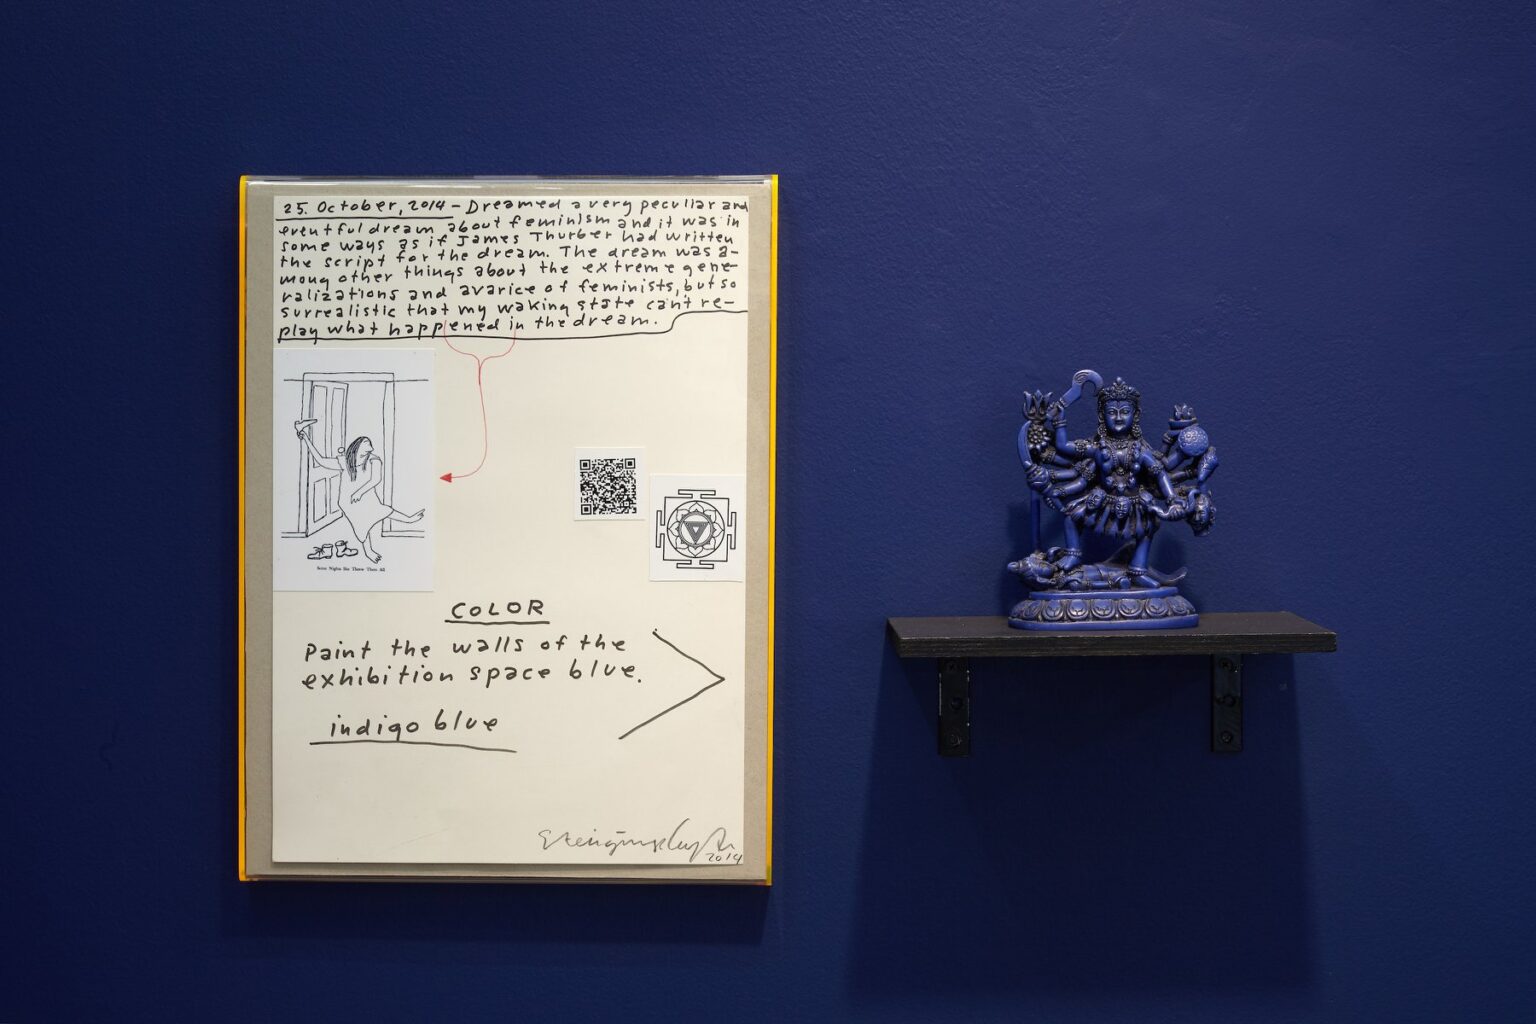 25. October, 2014 – Dreamed a very peculiar and
eventful dream about feminism and it was in
some ways as if James Thurber had written
the script for the dream. The dream was a-
mong other things about the extreme gene-
ralizations and avarice of feminists, but so
surrealistic that my waking state can't re-
play what happened in the dream.
Some Nights She Threw Them All
COLOR
Paint the walls of the
exhibition space blue.
indigo blue
2014